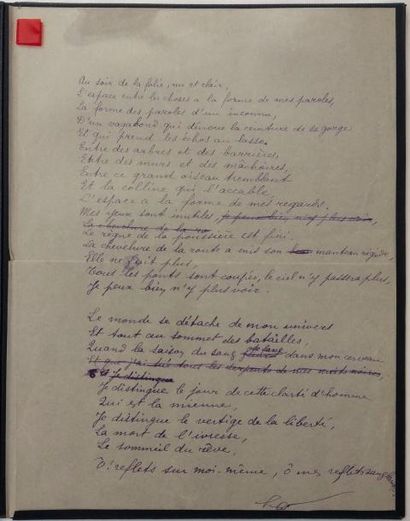 Au soir de la folie, nu et clair,
L'espace entre les choses a la forme de mes paroles,
La forme des paroles d'un inconnu,
D'un vagabond qui dénoue la ceinture de sa gorge
Et qui prend les échos au lasso.
Entre des arbres et des barrières,
Entre des murs et des mâchoires,
Entre ce grand oiseau tremblant
Et la colline qui l'accable,
L'espace a la forme de mes regards.
Mes yeux sont inutiles, je peux bien n'y plus voir,
La chevelure de la ro
Le règne de la poussière est fini.
La chevelure de la route a mis son manteau rigide,
Elle ne fuit plus,
Tous les ponts sont coupés, le ciel n'y passera plus,
Je peux bien n'y plus voir.
Le monde se détache de mon univers
Et tout au sommet des batailles,
Quand la saison du sang dans mon cerveau
Et que j'ai tué tous les serpents de mes nuits noires,
Je distingue
Je distingue le jour de cette clarté d'homme
Qui est la mienne,
Je distingue le vertige de la liberté,
La mort de l'ivresse,
Le sommeil du rêve,
O! reflets sur moi-même, ô mes reflets sanglants!